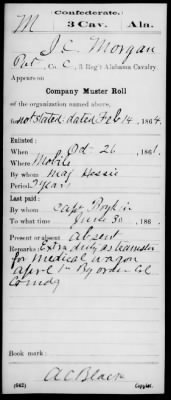 Confederate.
M 3 Cav. Ala.
J. C. Morgan
Pvt, Co. C, 3 Reg't Alabama Cavalry.
Appears on
Company Muster Roll
of the organization named above,
for not stated dated Feb 14, 1864.
Enlisted:
When Oct 26, 1861.
Where Mobile
By whom Maj Hessie
Period 3 years
Last paid:
By whom Capt
To what time June 30, 186
Present or absent absent
Remarks: Extra duty as teamster
for medical wagon
by order Col
Comdg
Book mark:
A C Black
(642) Copyist.